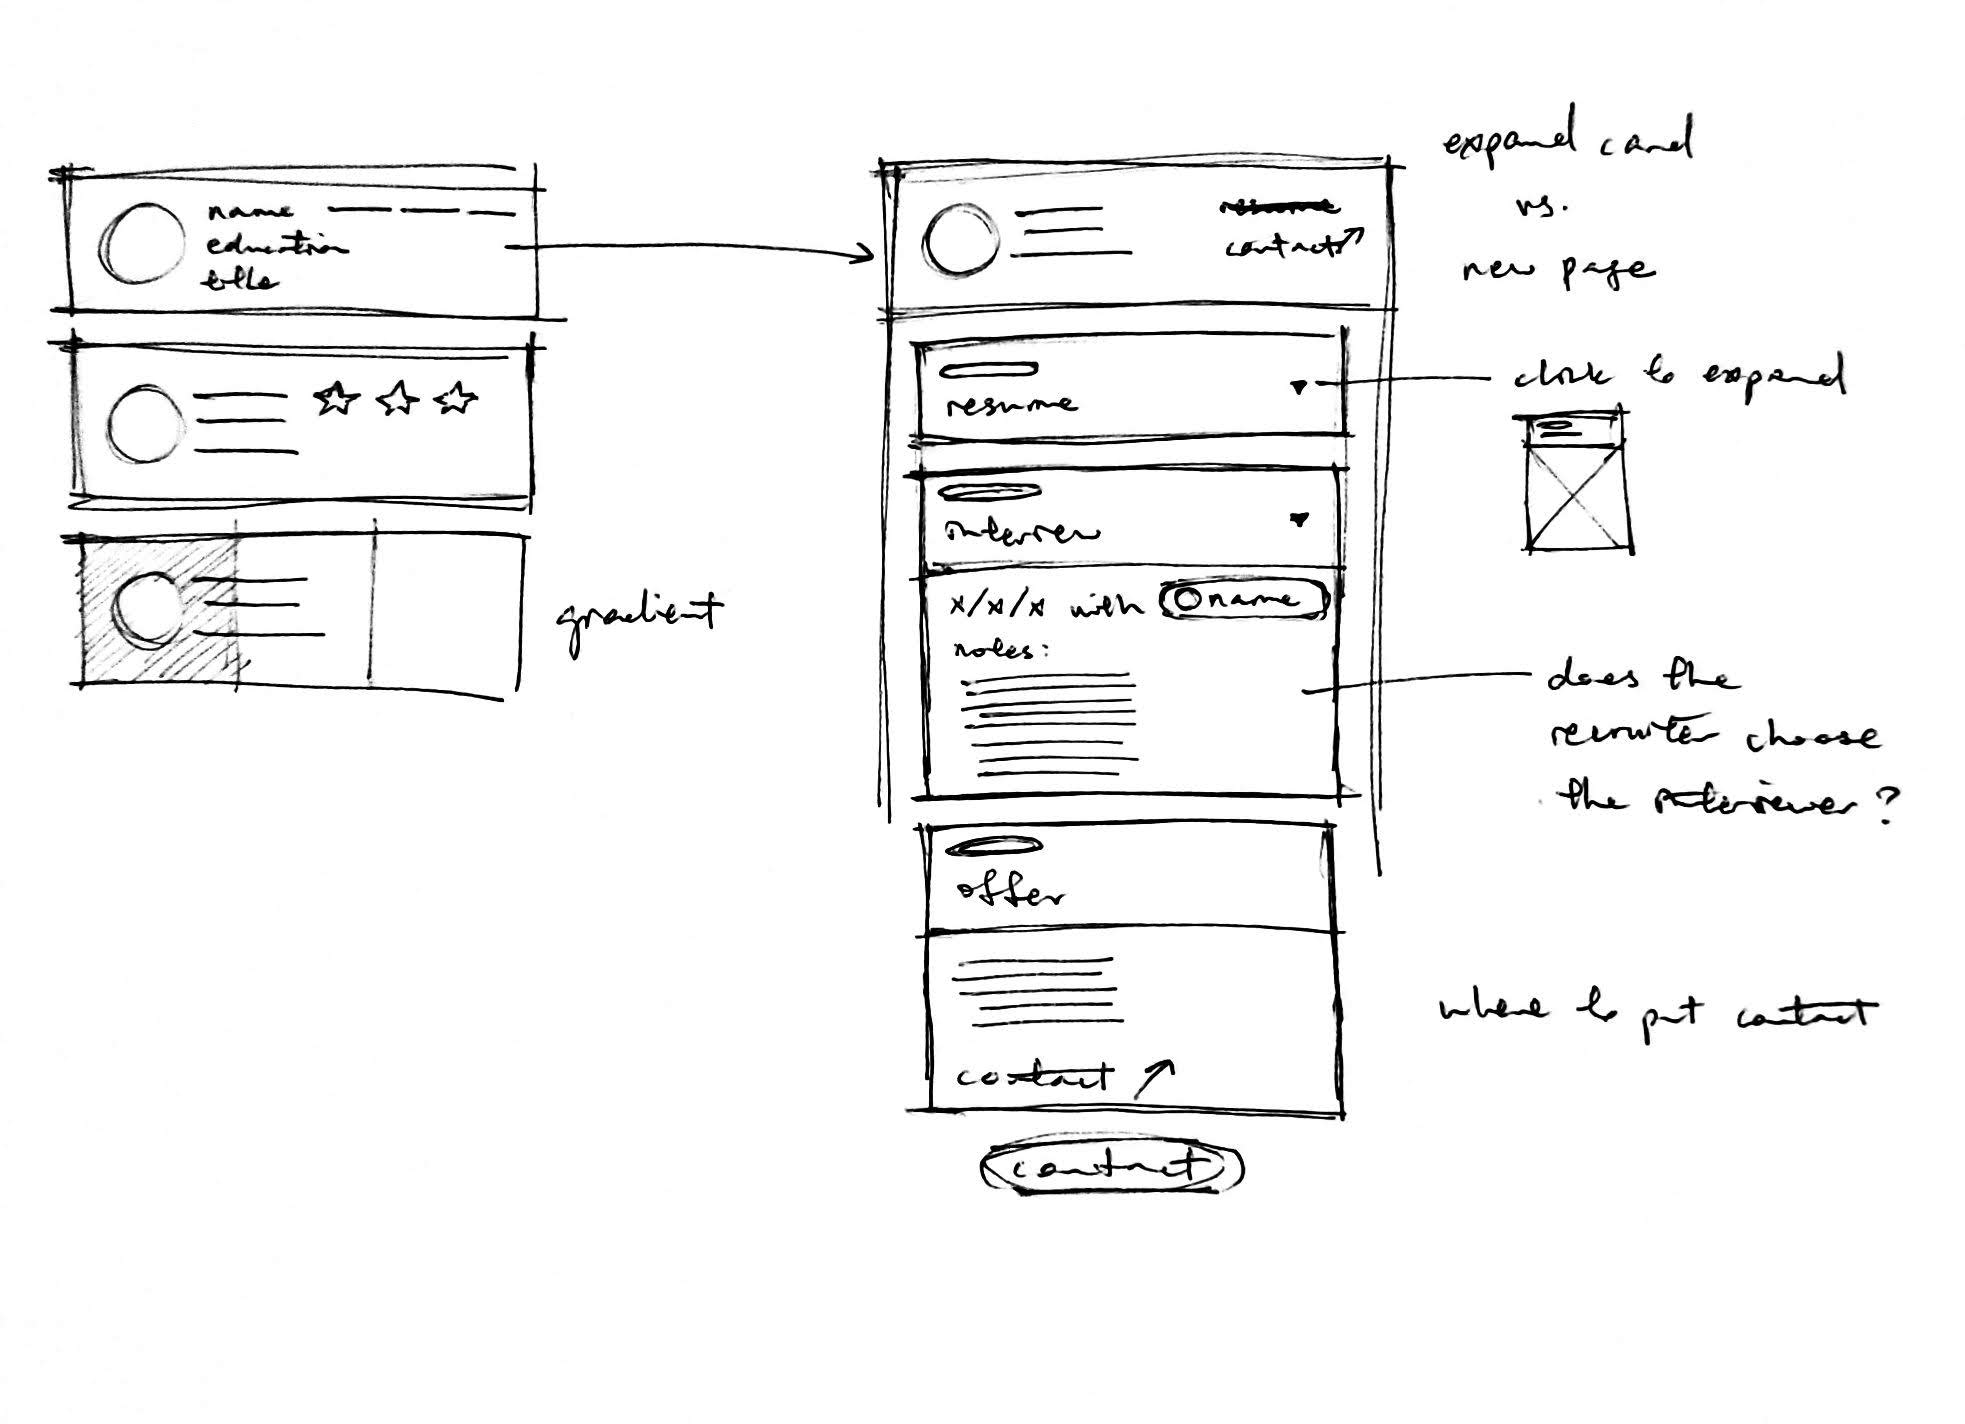 name
education
title
gradient
resume
contact
resume
interview
x/x/x with name
notes:
offer
contact
contact
expand card
vs.
new page
click to expand
does the
recruiter choose
the interviewer?
where to put contact